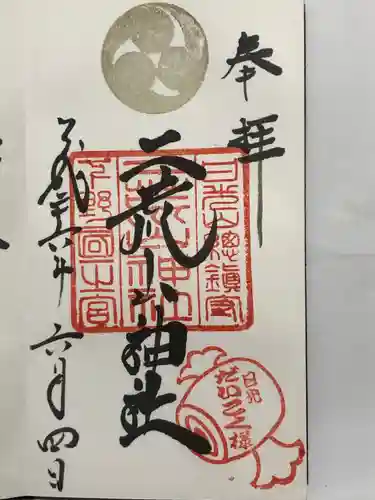 奉拝
日光山總鎮守
二荒山神社
下野國一之宮
日光
だいこく様
平成二十六年六月四日